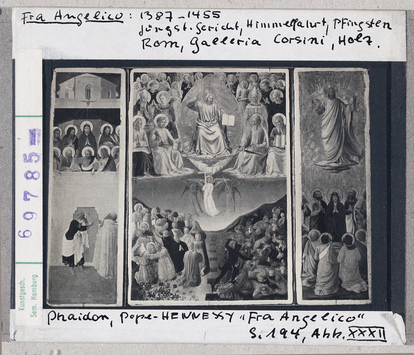 Fra Angelico: 1387-1455
Jüngst. Gericht, Himmelfahrt, Pfingsten
Rom, Galleria Corsini, Holz.
69785
Kunstgesch.
Sem. Hamburg
Phaidon, Pope-HENNESSY "Fra Angelico"
S. 194, Abb. XXXII